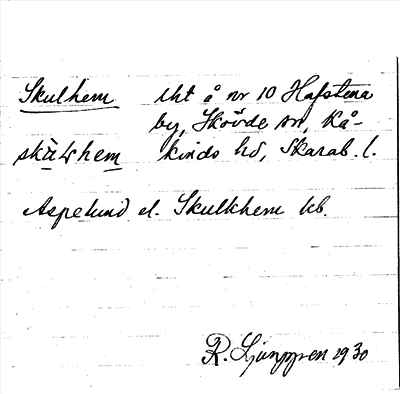 Skulhem lht å nr 10 Hafstena
by, Skövde sn, Kå-
skälhem kinds hd, Skarab. l.
Aspelund el. Skulkhem kb.
R. Ljunggren 1930